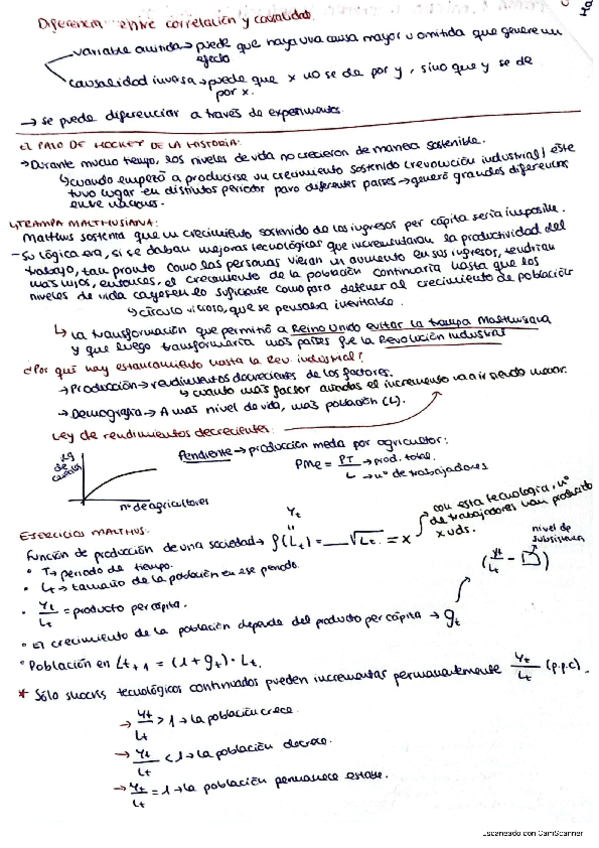 Diferencia entre correlación y causalidad.
variable omitida → puede que haya una causa mayor u omitida que genere un
efecto
causalidad inversa → puede que x no se de por y, sino que y se de
por x.
→ se puede diferenciar a través de experimentos.
EL PALO DE HOCKEY DE LA HISTORIA:
→ Durante mucho tiempo, los niveles de vida no crecieron de manera sostenible.
↳ cuando empezó a producirse un crecimiento sostenido (revolución industrial) este
tuvo lugar en distintos periodos para diferentes países → generó grandes diferencias
entre naciones.
↳ TRAMPA MALTHUSIANA:
Malthus sostenía que un crecimiento sostenido de los ingresos per cápita sería imposible.
- Su lógica era, si se daban mejoras tecnológicas que incrementaran la productividad del
trabajo, tan pronto como las personas vieran un aumento en sus ingresos, tendrían
más hijos, entonces, el crecimiento de la población continuaría hasta que los
niveles de vida cayesen lo suficiente como para detener al crecimiento de población
↳ círculo vicioso, que se pensaba inevitable.
↳ La transformación que permitió a Reino Unido evitar la trampa Malthusiana
y que luego transformaría más países fue la Revolución Industrial
¿Por qué hay estancamiento hasta la Rev. industrial?
→ Producción → rendimientos decrecientes de los factores.
↳ cuanto más factor añadas el incremento va a ir siendo menor.
→ Demografía → A más nivel de vida, más población (L).
Ley de rendimientos decrecientes:
kg
de
Pendiente → producción media por agricultor:
PMe = PT → prod. total.
L → nº de trabajadores
nº de agricultores
EJERCICIOS MALTHUS:
Yt
con esta tecnología, nº
de trabajadores van produciendo
x uds.
Función de producción de una sociedad → f(Lt) = __√Lt. = x
nivel de
subsistencia
• T → periodo de tiempo.
• Lt → tamaño de la población en ese periodo.
• Yt/Lt = producto per cápita.
(Yt/Lt - □)
• El crecimiento de la población depende del producto per cápita → gt
• Población en Lt+1 = (1+gt)·Lt.
* Sólo shocks tecnológicos continuados pueden incrementar permanentemente Yt/Lt (p.p.c).
→ Yt/Lt > 1 → la población crece.
→ Yt/Lt < 1 → la población decrece.
→ Yt/Lt = 1 → la población permanece estable.
Escaneado con CamScanner